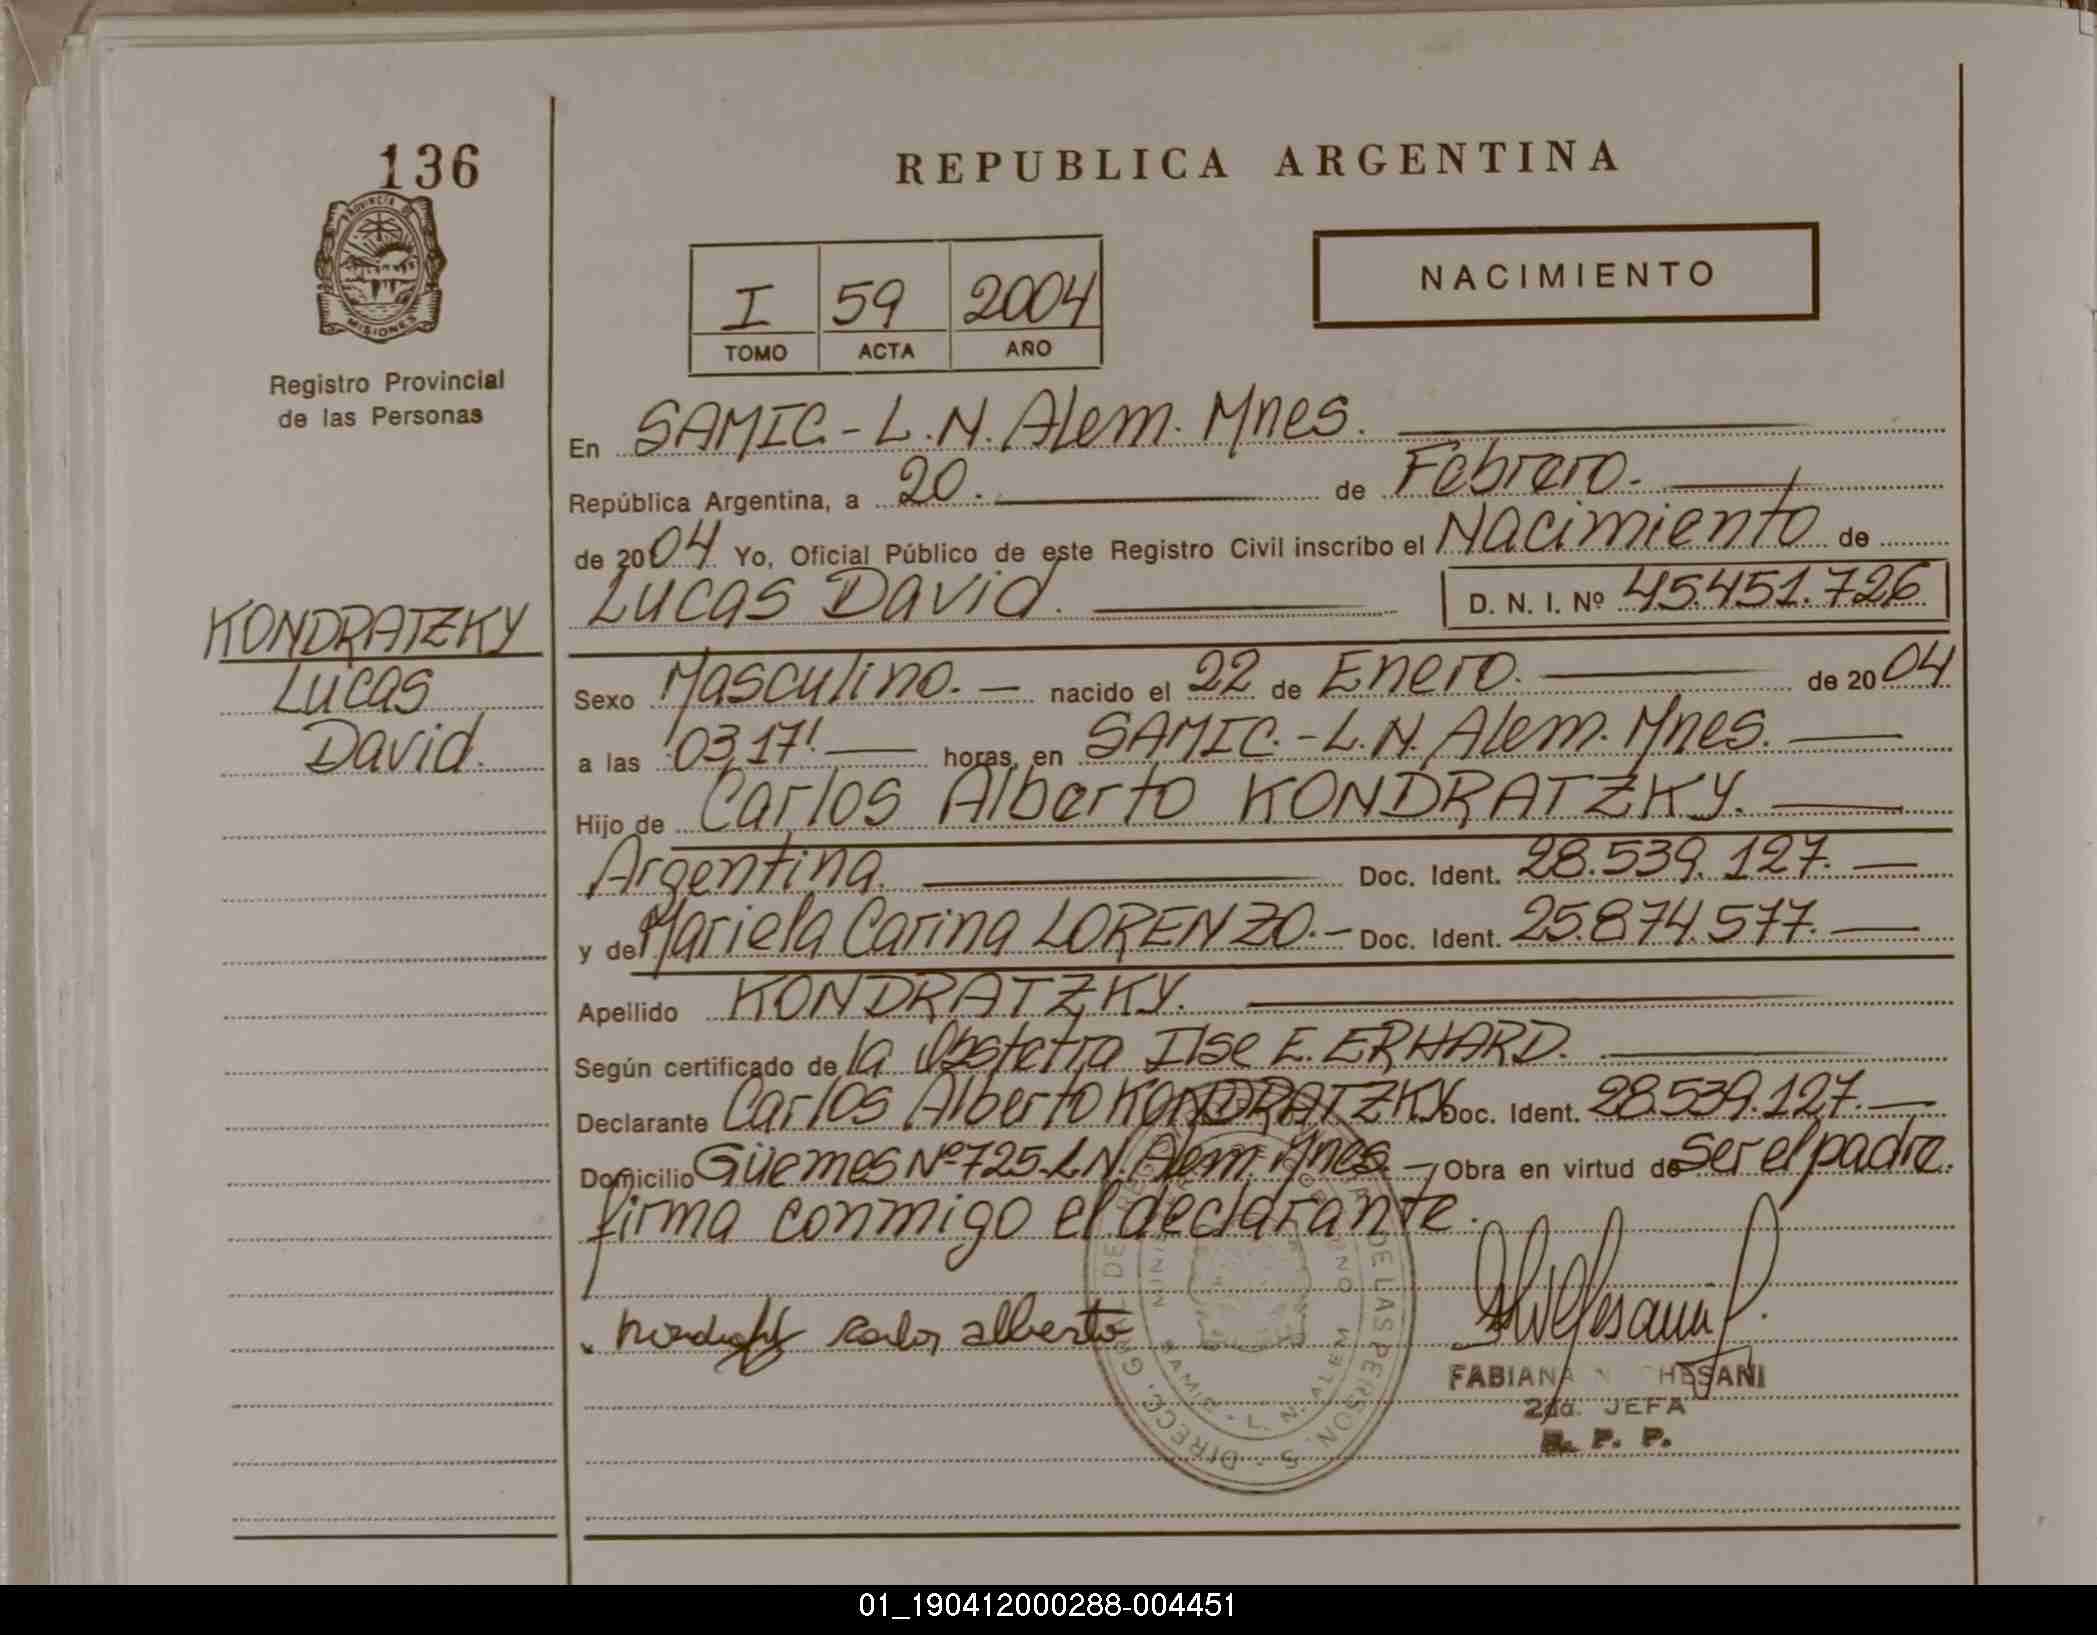 136
PROVINCIA DE
MISIONES
Registro Provincial
de las Personas
KONDRATZKY
Lucas
David.
REPUBLICA ARGENTINA
NACIMIENTO
I 59 2004
TOMO ACTA AÑO
En SAMIC.-L.N. Alem. Mnes.
República Argentina, a 20. de Febrero.
de 2004 Yo, Oficial Público de este Registro Civil inscribo el Nacimiento de
Lucas David. D. N. I. Nº 45.451.726
Sexo Masculino. nacido el 22 de Enero. de 2004
a las '03,17! horas, en SAMIC.-L.N. Alem. Mnes.
Hijo de Carlos Alberto KONDRATZKY.
Argentina. Doc. Ident. 28.539.127.
y de Mariela Carina LORENZO.- Doc. Ident. 25.874.577.
Apellido KONDRATZKY.
Según certificado de la Obstetra Ilse E. ERHARD.
Declarante Carlos Alberto KONDRATZKY Doc. Ident. 28.539.127.
Domicilio Güemes Nº 725.L.N. Alem. Mnes. Obra en virtud de ser el padre.
firma conmigo el declarante.
Carlos alberto
FABIANA HESANI
2da. JEFA
R. P. P.
01_190412000288-004451